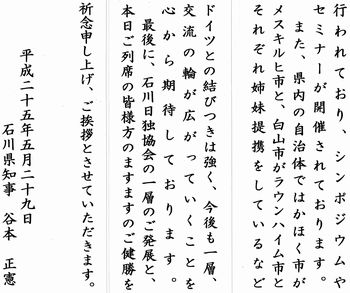 行われており、シンポジウムや
セミナーが開催されております。
また、県内の自治体ではかほく市が
メスキルヒ市と、白山市がラウンハイム市と
それぞれ姉妹提携をしているなど
ドイツとの結びつきは強く、今後も一層、
交流の輪が広がっていくことを
心から期待しております。
最後に、石川日独協会の一層のご発展と、
本日ご列席の皆様方のますますのご健勝を
祈念申し上げ、ご挨拶とさせていただきます。
平成二十五年五月二十九日
石川県知事 谷本 正憲